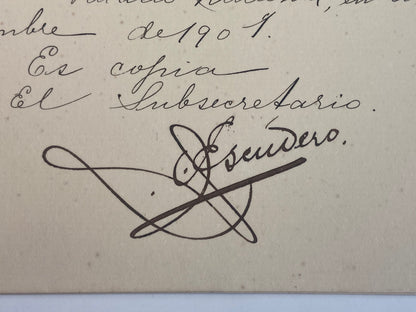 Palacio Nacional, en
mbre de 1907.
Es copia
El Subsecretario.
Escudero.